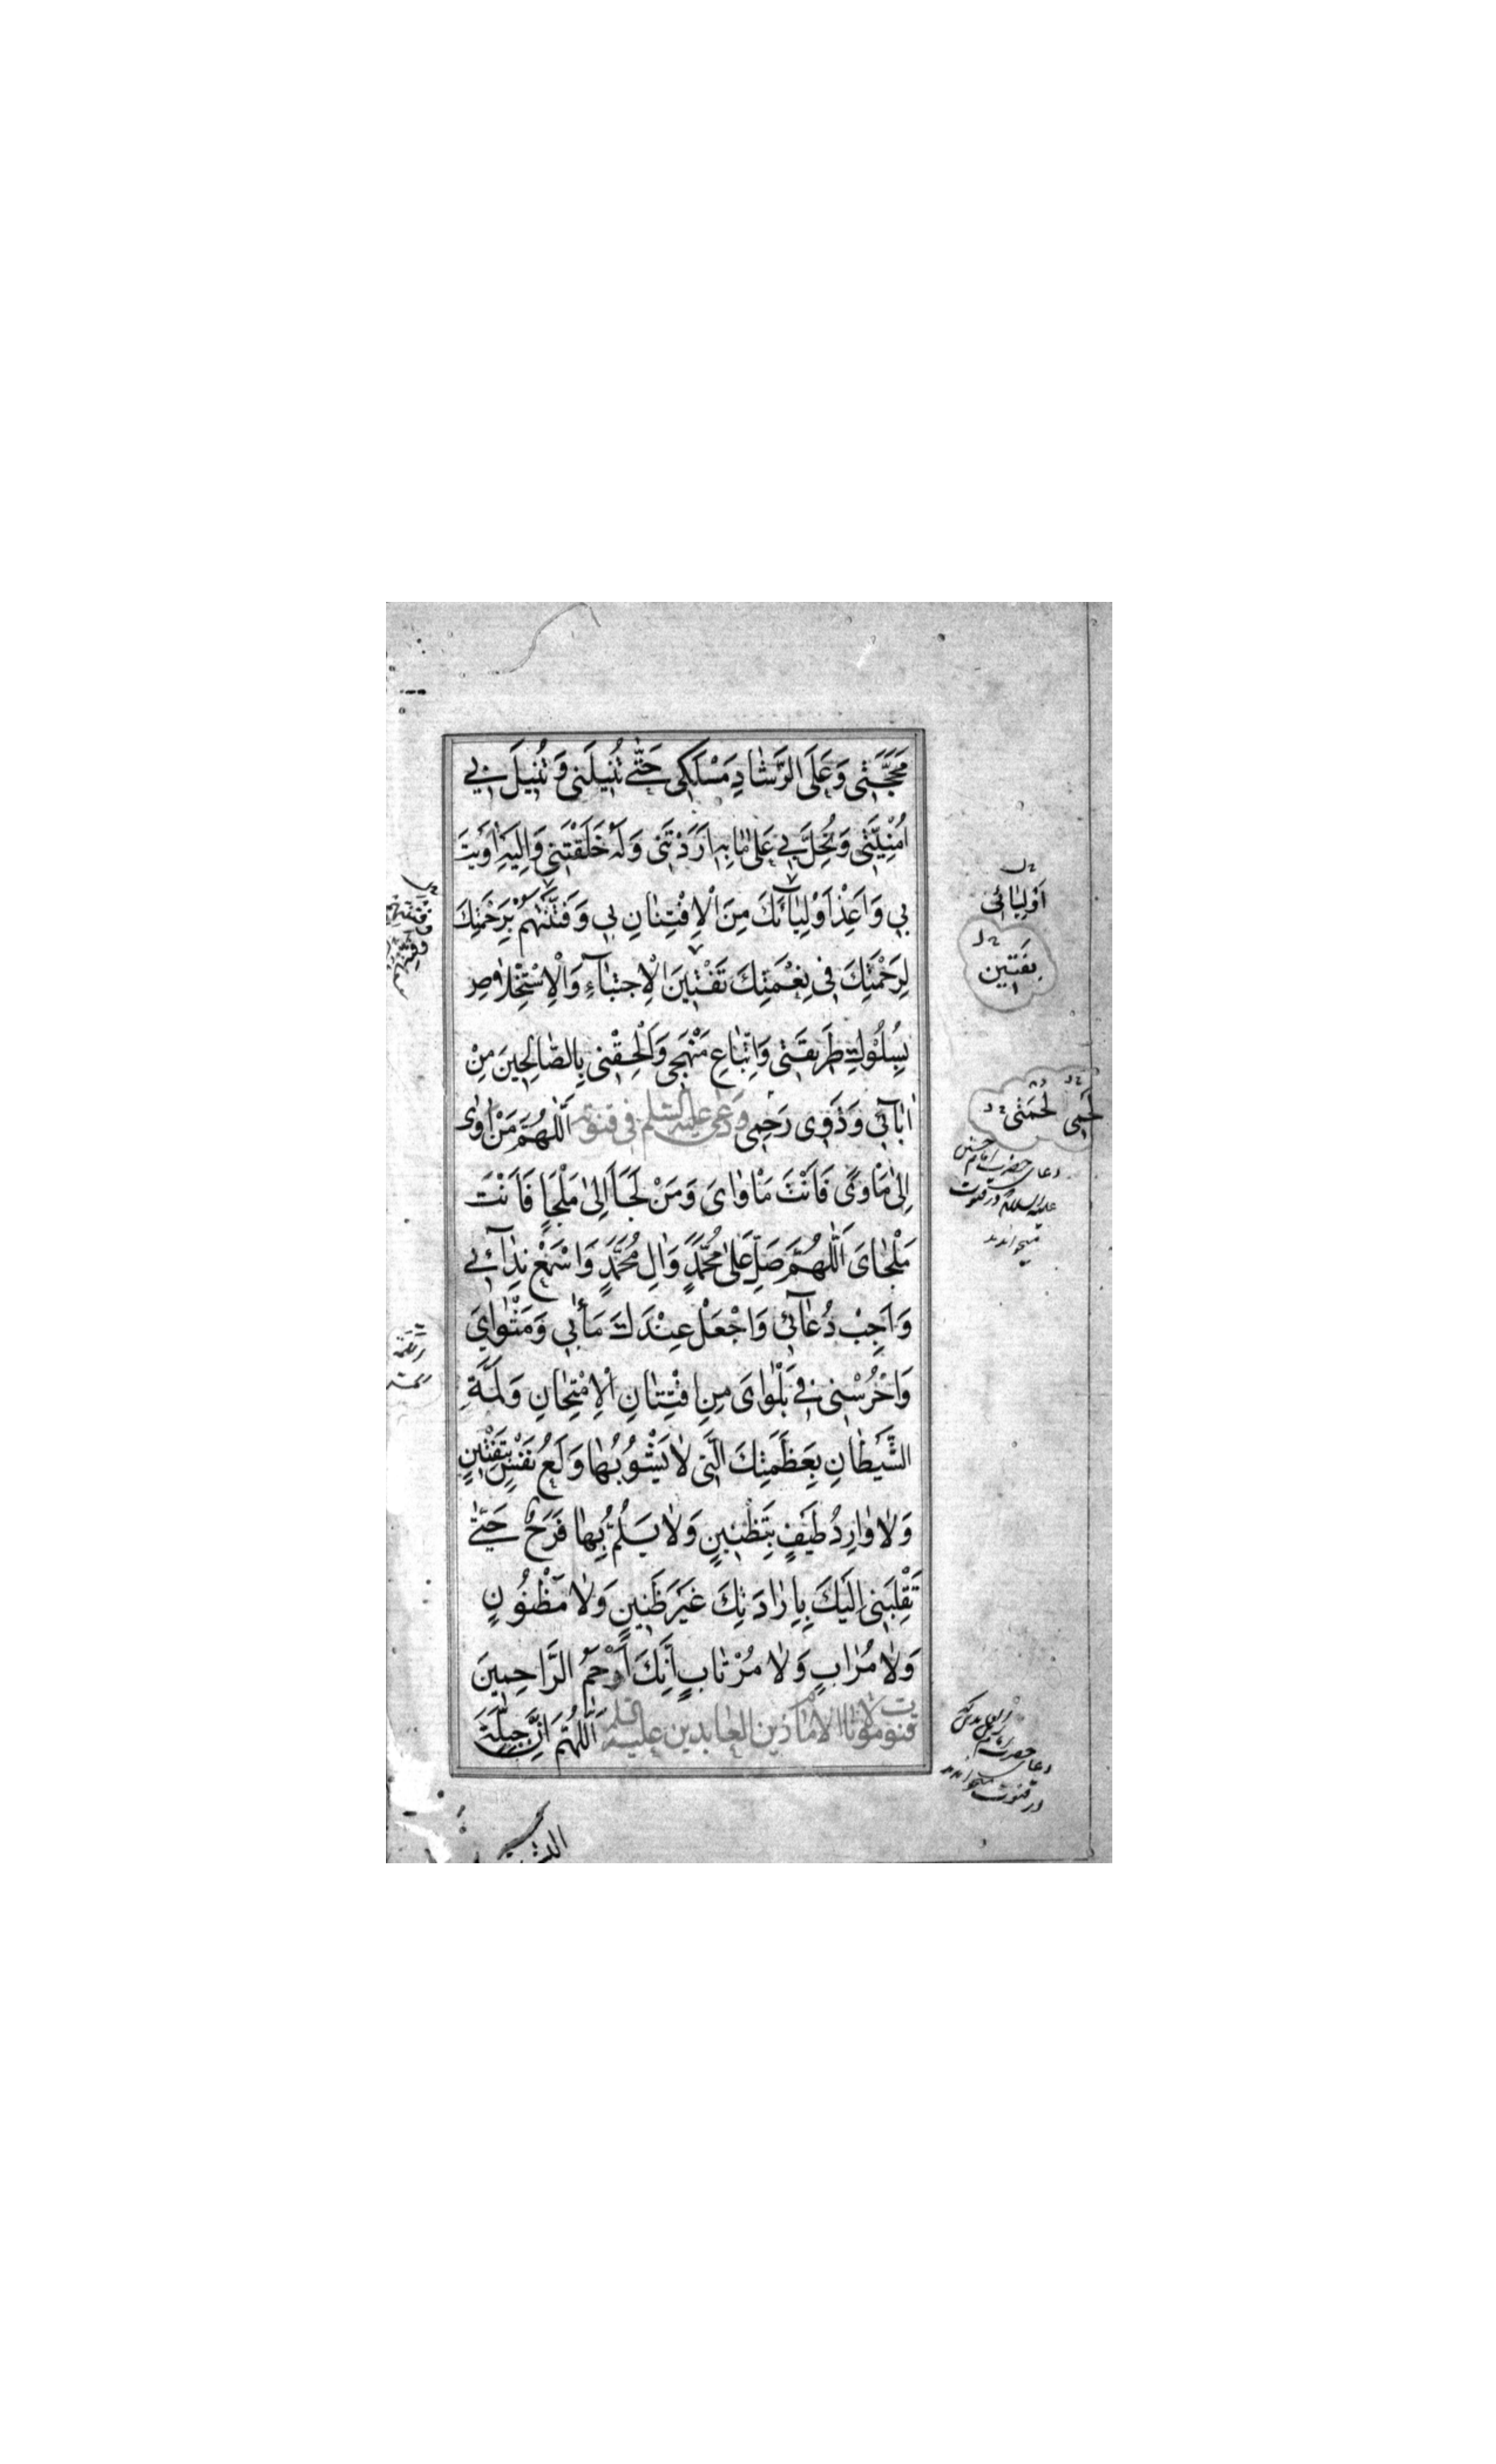 مَحَجَّتِي وَعَلَى الرَّشَادِ مَسْلَكِي حَتّٰى تُنِيلَنِي وَتُنِيلَ بِي
اُمْنِيَّتِي وَتُحِلَّ بِي عَلٰى مَا بِهِ اَرَدْتَنِي وَلَهُ خَلَقْتَنِي وَاِلَيْهِ اٰوَيْتَ
بِي وَاَعِذْ اَوْلِيَآئَكَ مِنَ الْاِفْتِتَانِ بِي وَفَتِّنْهُمْ بِرَحْمَتِكَ
لِرَحْمَتِكَ فِي نِعْمَتِكَ تَفْتِينَ الْاِجْتِبَآءِ وَالْاِسْتِخْلَاصِ
بِسُلُوكِ طَرِيقَتِي وَاتِّبَاعِ مَنْهَجِي وَاَلْحِقْنِي بِالصَّالِحِينَ مِنْ
اٰبَآئِي وَذَوِي رَحِمِي وَدَعٰى عليه السلم في قنوته اَللّٰهُمَّ مَنْ اَوٰى
اِلٰى مَاْوًى فَاَنْتَ مَاْوَايَ وَمَنْ لَجَاَ اِلٰى مَلْجَاٍ فَاَنْتَ
مَلْجَايَ اَللّٰهُمَّ صَلِّ عَلٰى مُحَمَّدٍ وَاٰلِ مُحَمَّدٍ وَاسْمَعْ نِدَآئِي
وَاَجِبْ دُعَآئِي وَاجْعَلْ عِنْدَكَ مَأٰبِي وَمَثْوَايَ
وَاحْرُسْنِي فِي بَلْوَايَ مِنِ افْتِتَانِ الْاِمْتِحَانِ وَلَمَّةِ
الشَّيْطَانِ بِعَظَمَتِكَ الَّتِي لَا يَشُوبُهَا وَلَعُ نَفْسٍ بِتَفْتِينٍ
وَلَا وَارِدُ طَيْفٍ بِتَظْنِينٍ وَلَا يَلُمُّ بِهَا فَرَحٌ حَتّٰى
تَقْلِبَنِي اِلَيْكَ بِاِرَادَتِكَ غَيْرَ ظَنِينٍ وَلَا مَظْنُونٍ
وَلَا مُرَابٍ وَلَا مُرْتَابٍ اِنَّكَ اَرْحَمُ الرَّاحِمِينَ
قنوت مولانا الامام زين العابدين عليه السلم اَللّٰهُمَّ اِنَّ جِبِلَّةَ
اَوْلِيَائِي
بِتَفْتِين
لُحْمَتِي
دعای حضرت امام حسین
علیه السلام در قنوت
میخواندند
دعای حضرت امام زین العابدین که
در قنوت میخواندند